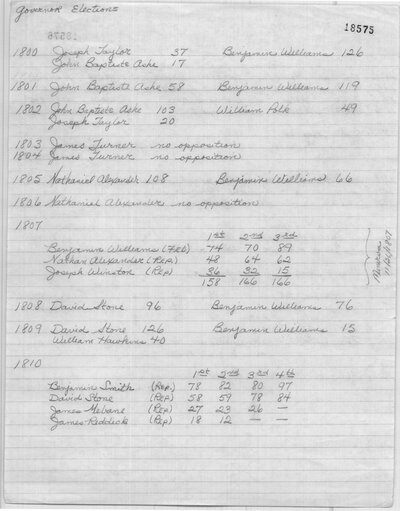 Governor Elections
18575
18575
1800 Joseph Taylor 37 Benjamin Williams 126
John Baptiste Ashe 17
1801 John Baptiste Ashe 58 Benjamin Williams 119
1802 John Baptiste Ashe 103 William Polk 49
Joseph Taylor 20
1803 James Turner no opposition
1804 James Turner no opposition
1805 Nathaniel Alexander 108 Benjamin Williams 66
1806 Nathaniel Alexander no opposition
1807
1st 2nd 3rd
Benjamin Williams (Fed) 74 70 89
Nathan Alexander (Rep) 48 64 62
Joseph Winston (Rep) 36 32 15
158 166 166
1808 David Stone 96 Benjamin Williams 76
1809 David Stone 126 Benjamin Williams 15
William Hawkins 40
1810
1st 2nd 3rd 4th
Benjamin Smith (Rep.) 78 82 80 97
David Stone (Rep) 58 59 78 84
James Mebane (Rep) 27 23 26 —
James Reddick (Rep) 18 12 — —